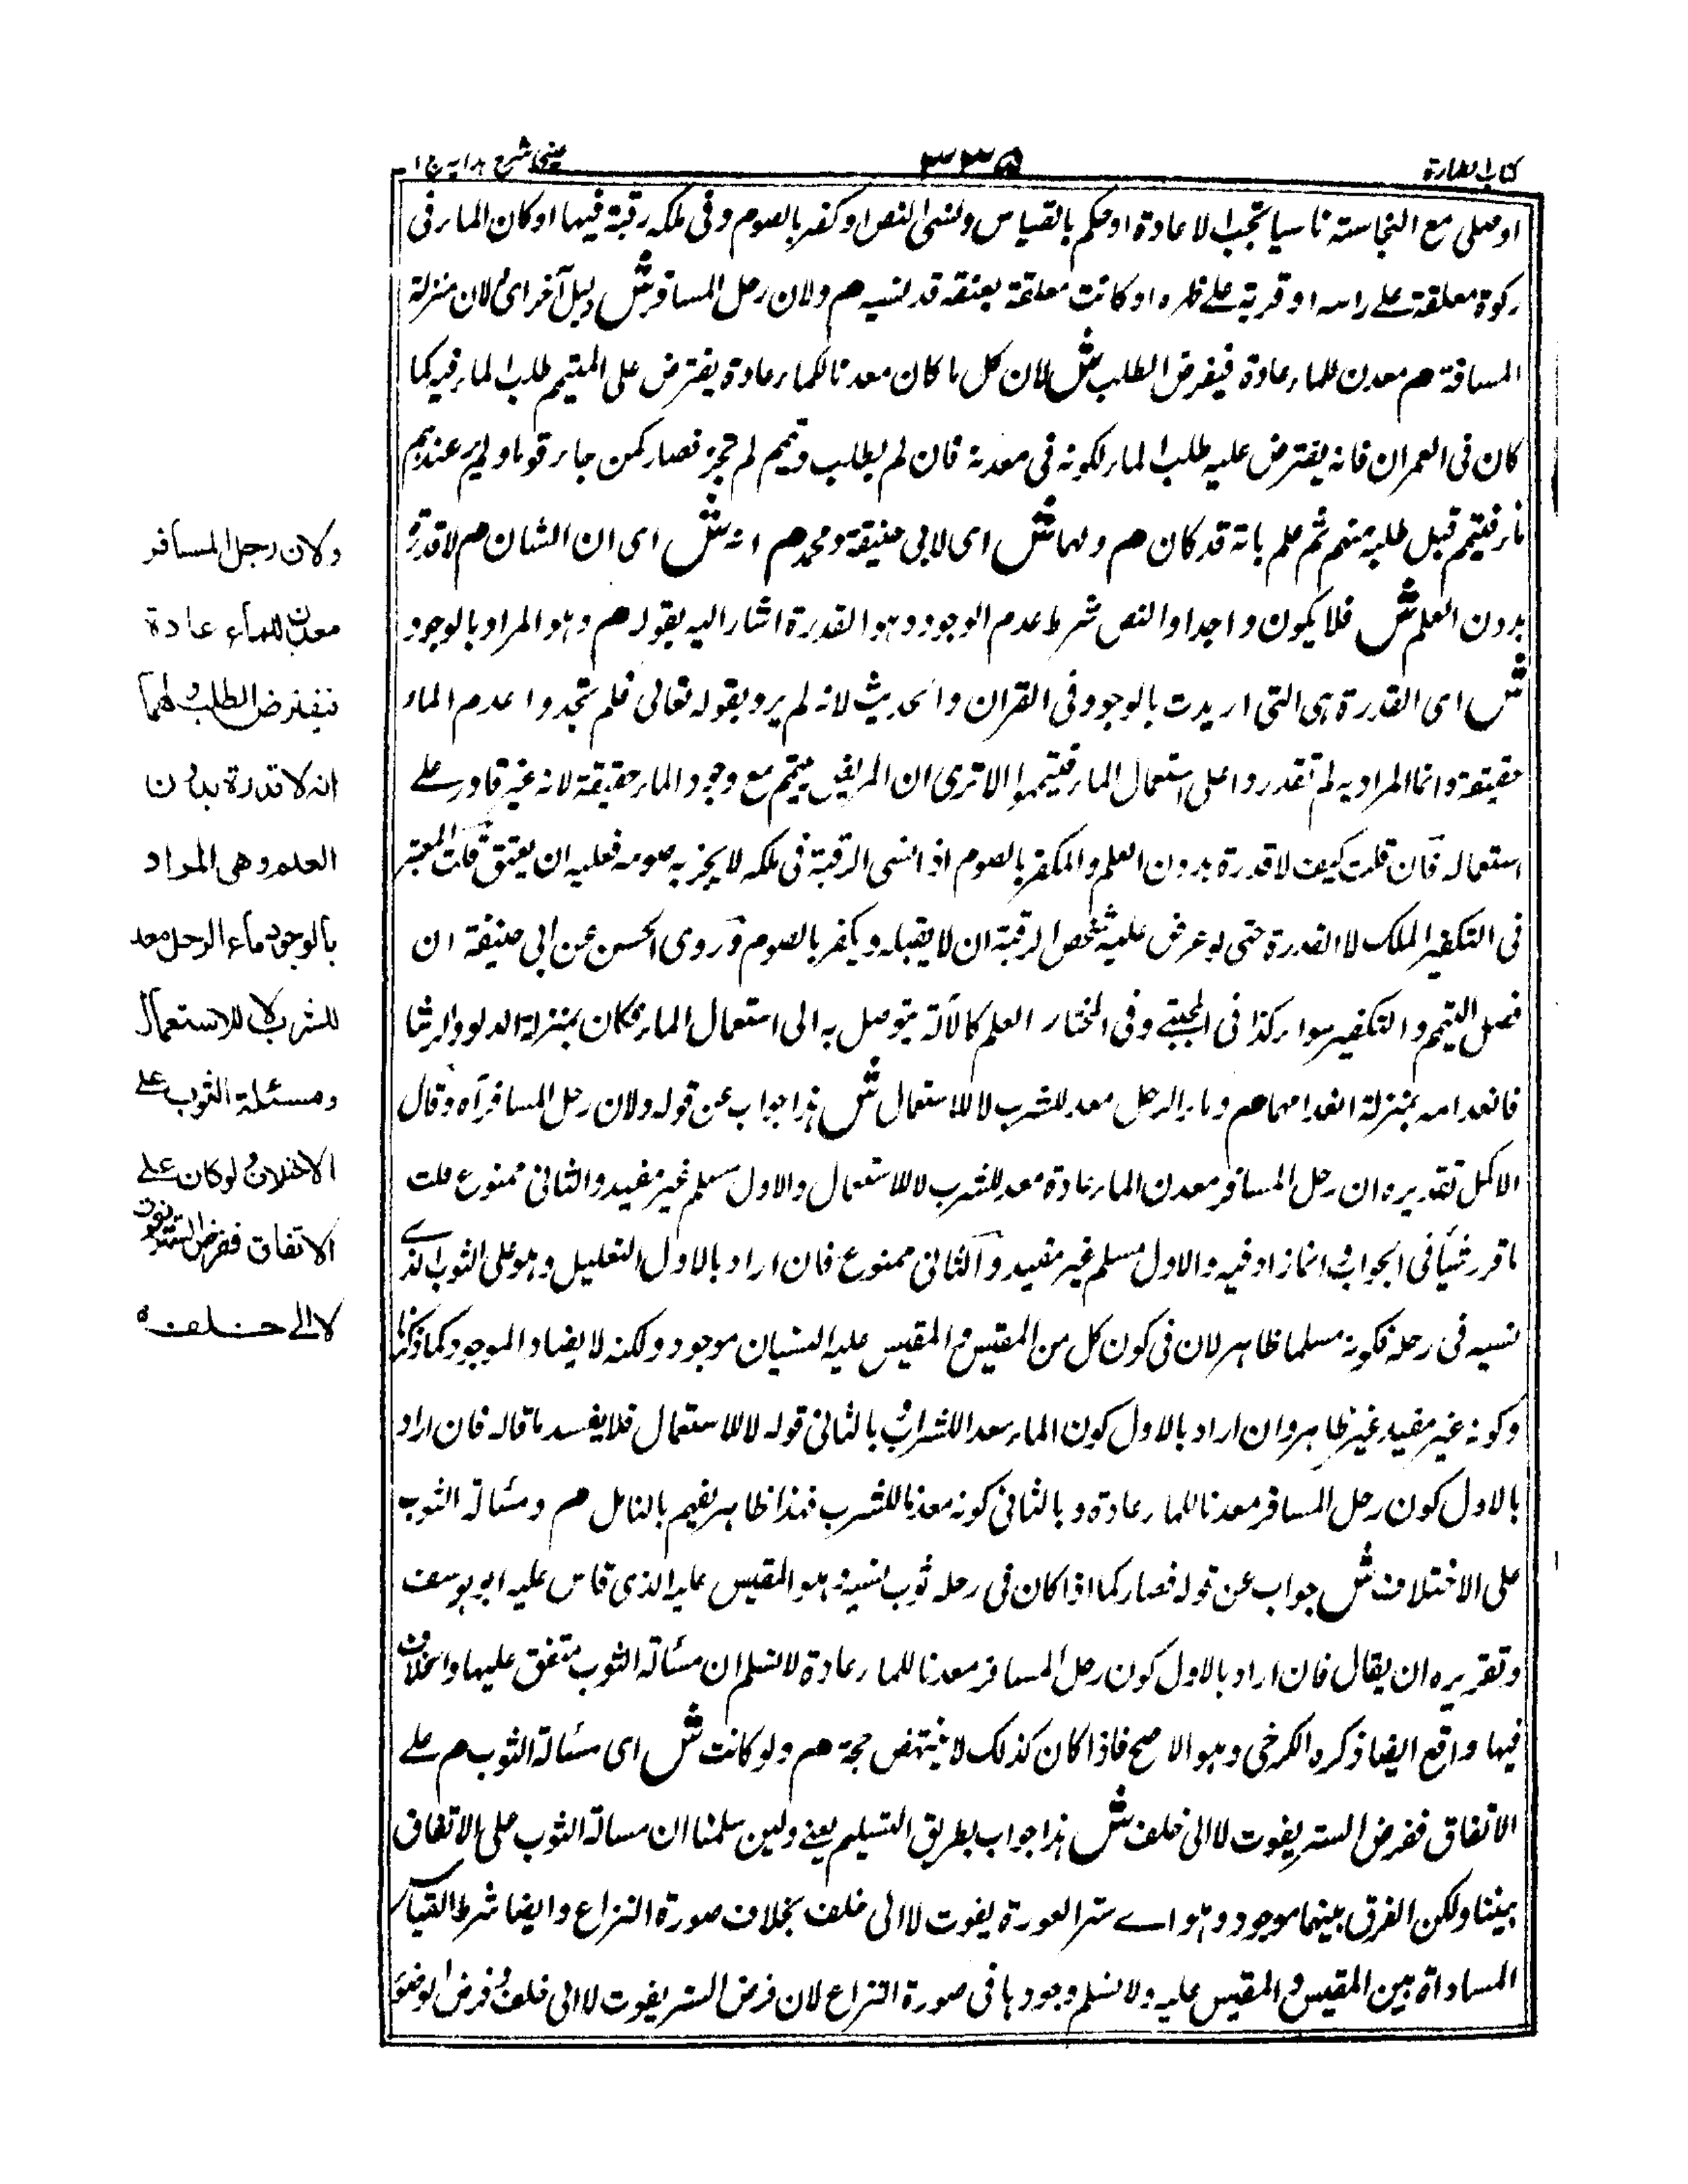 كتاب الطهارة
٣٣٥
عینی شرح هدایه ج ١
او صلى مع النجاسة ناسيا تجب الاعادة او حكم بالقياس ونسى النص او كفر بالصوم وفى ملكه رقبة فيها او كان الماء فى
ركوة معلقة على راسه او قربة على ظهره او كانت معلقة بعنقه قد نسيه هم ولان رحل المسافر ش دليل آخر اى ولان منزلة
المسافة هم معدن للماء عادة فيفرض الطلب ش لان كل ما كان معدنا للماء عادة يفترض على المتيمم طلب الماء فيه كما
كان فى العمران فانه يفترض عليه طلب الماء لكونه فى معدنه فان لم يطلب وتيمم لم يجز فصار كمن جاء قوما ولم ير عندهم
ماء فتيمم قبل طلبه منهم ثم علم بانه قد كان هم ولهما ش اى لابى حنيفة ومحمد هم انه ش اى ان الشان هم لا قدرة
بدون العلم ش فلا يكون واجدا والنص شرط عدم الوجود وهو القدرة اشار اليه بقوله هم وهو المراد بالوجود
ش اى القدرة هى التى اريدت بالوجود فى القران والحديث لانه لم يرد بقوله تعالى فلم تجدوا عدم الماء
حقيقة وانما المراد به لم تقدروا على استعمال الماء فتيمموا الا ترى ان المريض يتيمم مع وجود الماء حقيقة لانه غير قادر على
استعماله فان قلت كيف لا قدرة بدون العلم والمكفر بالصوم اذا نسى الرقبة فى ملكه لا يجز به صومه فعليه ان يعتق قلت المعتبر
فى التكفير الملك لا القدرة حتى لو عرض عليه شخص الرقبة ان لا يقبله ويكفر بالصوم وروى الحسن عن ابى حنيفة ان
فصل التيمم والتكفير سواء كذا فى المجتبى وفى المختار العلم كالآلة يتوصل به الى استعمال الماء فكان بمنزلة الدلو والرشا
فانعدامه بمنزلة انعدامهما هم وماء الرحل معد للشرب لا للاستعمال ش هذا جواب عن قوله ولان رحل المسافر آه وقال
الاكمل تقديره ان رحل المسافر معدن الماء عادة معد للشرب لا للاستعمال والاول مسلم غير مفيد والثانى ممنوع قلت
ما قرر شيأ فى الجواب انما زاد فيه والاول مسلم غير مفيد والثانى ممنوع فان اراد بالاول التعليل وهو على الثوب الذى
نسيه فى رحله فكونه مسلما ظاهر لان فى كون كل من المقيس والمقيس عليه النسيان موجود ولكنه لا يضاد الموجود كما ذكرنا
وكونه غير مفيد غير ظاهر وان اراد بالاول كون الماء معدا للشراب وبالثانى قوله لا للاستعمال فلا يفسد ما قاله فان اراد
بالاول كون رحل المسافر معدنا للماء عادة وبالثانى كونه معدنا للشرب فهذا ظاهر يفهم بالتامل هم ومسألة الثوب
على الاختلاف ش جواب عن قوله فصار كما اذا كان فى رحله ثوب نسيه وهو المقيس عليه الذى قاس عليه ابو يوسف
وتقريره ان يقال فان اراد بالاول كون رحل المسافر معدنا للماء عادة لا نسلم ان مسألة الثوب متفق عليها والخلاف
فيها واقع ايضا ذكره الكرخى وهو الاصح فاذا كان كذلك لا ينتهض حجة هم ولو كانت ش اى مسألة الثوب هم على
الاتفاق ففرض الستر يفوت لا الى خلف ش هذا جواب بطريق التسليم يعنى ولئن سلمنا ان مسالة الثوب على الاتفاق
بيننا ولكن الفرق بينهما موجود وهو اى ستر العورة يفوت لا الى خلف بخلاف صورة النزاع وايضا شرط القياس
المساواة بين المقيس والمقيس عليه ولا نسلم وجودها فى صورة النزاع لان فرض الستر يفوت لا الى خلف وفرض الوضوء
ولان رحل المسافر
معدن للماء عادة
فيفترض الطلب ولهما
انه لا قدرة بدون
العلم وهى المراد
بالوجود وماء الرحل معد
للشرب لا للاستعمال
ومسئلة الثوب على
الاختلاف ولو كان على
الاتفاق ففرض الستر يفوت
لا الى خلف ه